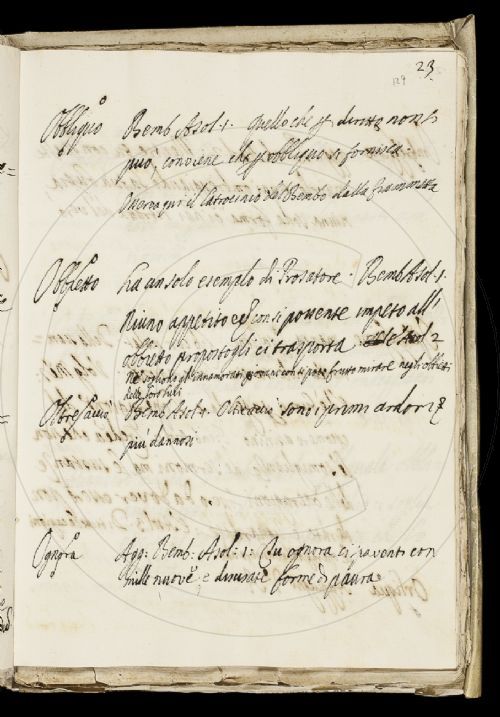 23
129
Obbliquo Bemb Asol. 1. Quello che p diritto non si
può, conviene che p obbliquo si fornisca.
Osserva qui il latrocinio del Bembo dalla Fiammetta
Obbietto ha un solo esempio di Prosatore. Bemb Asol. 1.
Niuno appetito è con sì possente impeto all'
obbietto propostogli ci trasporta. Asol 2
Ne sogliono gl'innamorati giovani con sì poco frutto mirare negli obbietti
delle
Oltre acciò Bemb Asol. 1. Oltracciò sono i primi ardori
più dannosi
Ognora Agg: Bemb: Asol: 1: Tu ognora ci paventi con
mille nuove, e disusate forme di paura